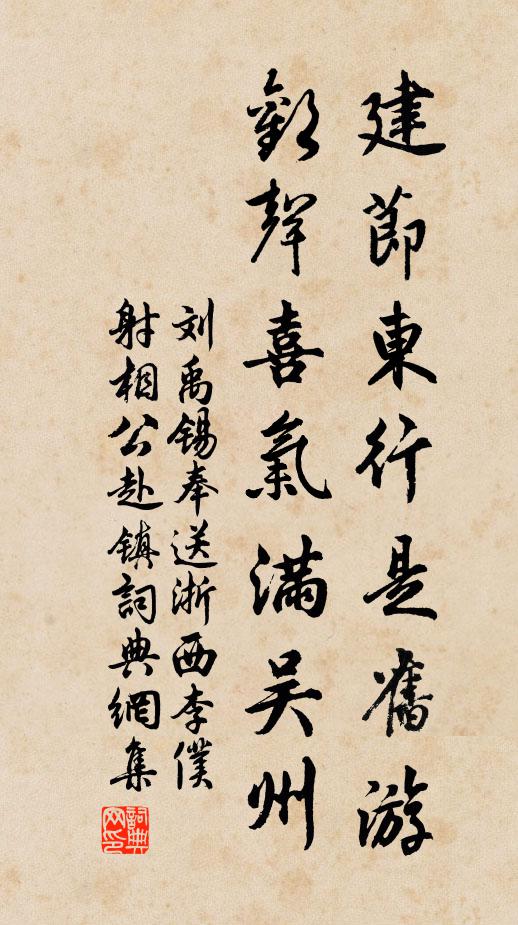 建節東行是舊游
歡聲喜氣滿吴州
刘禹锡奉送浙西李僕
射相公赴镇詞典網集
詞典网印